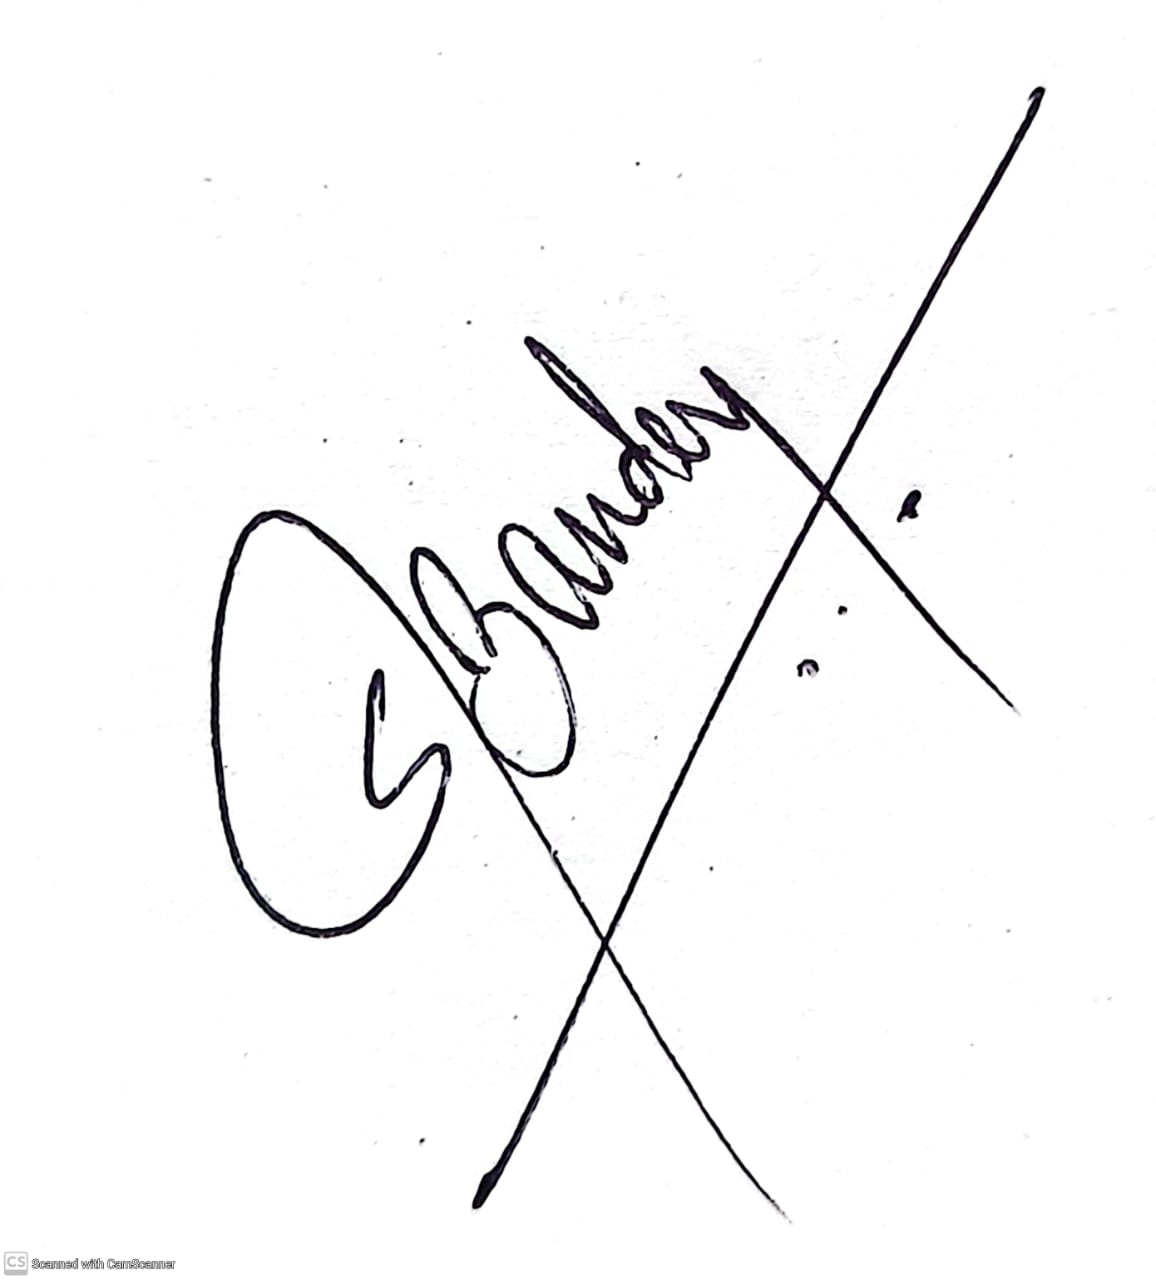 SPandey
CS Scanned with CamScanner